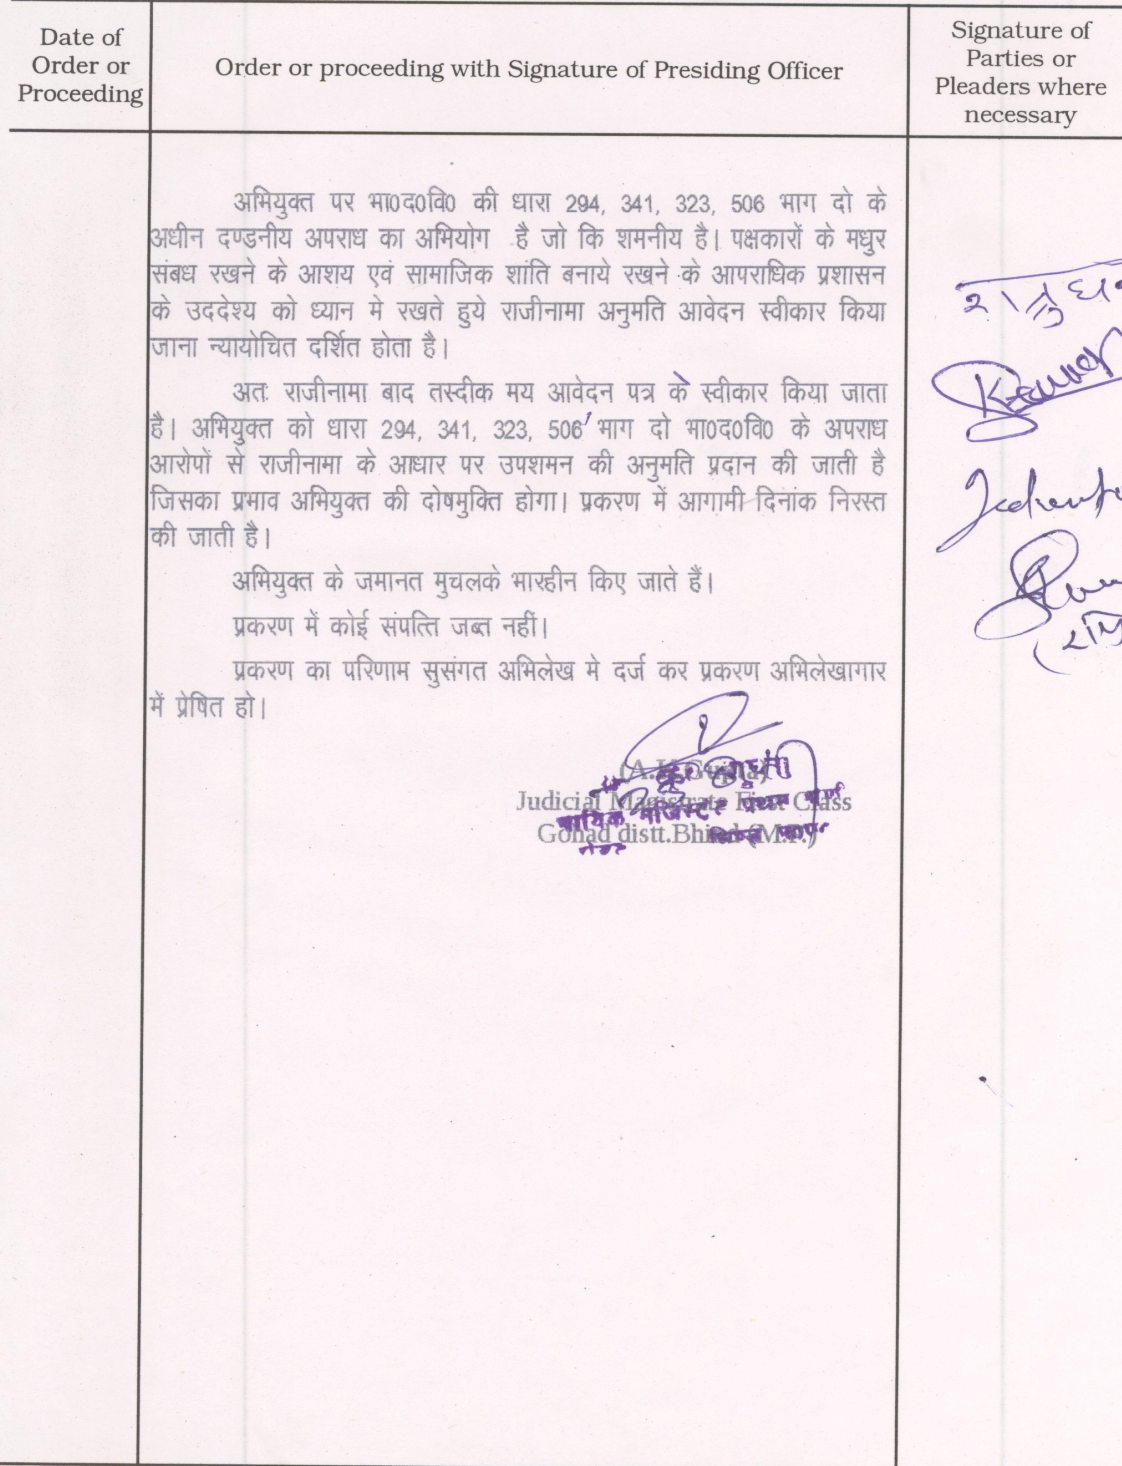 Date of
Order or
Proceeding
Order or proceeding with Signature of Presiding Officer
Signature of
Parties or
Pleaders where
necessary
अभियुक्त पर भा0द0वि0 की धारा 294, 341, 323, 506 भाग दो के
अधीन दण्डनीय अपराध का अभियोग है जो कि शमनीय है। पक्षकारों के मधुर
संबध रखने के आशय एवं सामाजिक शांति बनाये रखने के आपराधिक प्रशासन
के उददेश्य को ध्यान मे रखते हुये राजीनामा अनुमति आवेदन स्वीकार किया
जाना न्यायोचित दर्शित होता है।
अतः राजीनामा बाद तस्दीक मय आवेदन पत्र के स्वीकार किया जाता
है। अभियुक्त को धारा 294, 341, 323, 506 भाग दो भा0द0वि0 के अपराध
आरोपों से राजीनामा के आधार पर उपशमन की अनुमति प्रदान की जाती है
जिसका प्रभाव अभियुक्त की दोषमुक्ति होगा। प्रकरण में आगामी दिनांक निरस्त
की जाती है।
अभियुक्त के जमानत मुचलके भारहीन किए जाते हैं।
प्रकरण में कोई संपत्ति जब्त नहीं।
प्रकरण का परिणाम सुसंगत अभिलेख मे दर्ज कर प्रकरण अभिलेखागार
में प्रेषित हो।
(A.K.Gupta)
Judicial Magistrate First Class
Gohad distt.Bhind (M.P.)